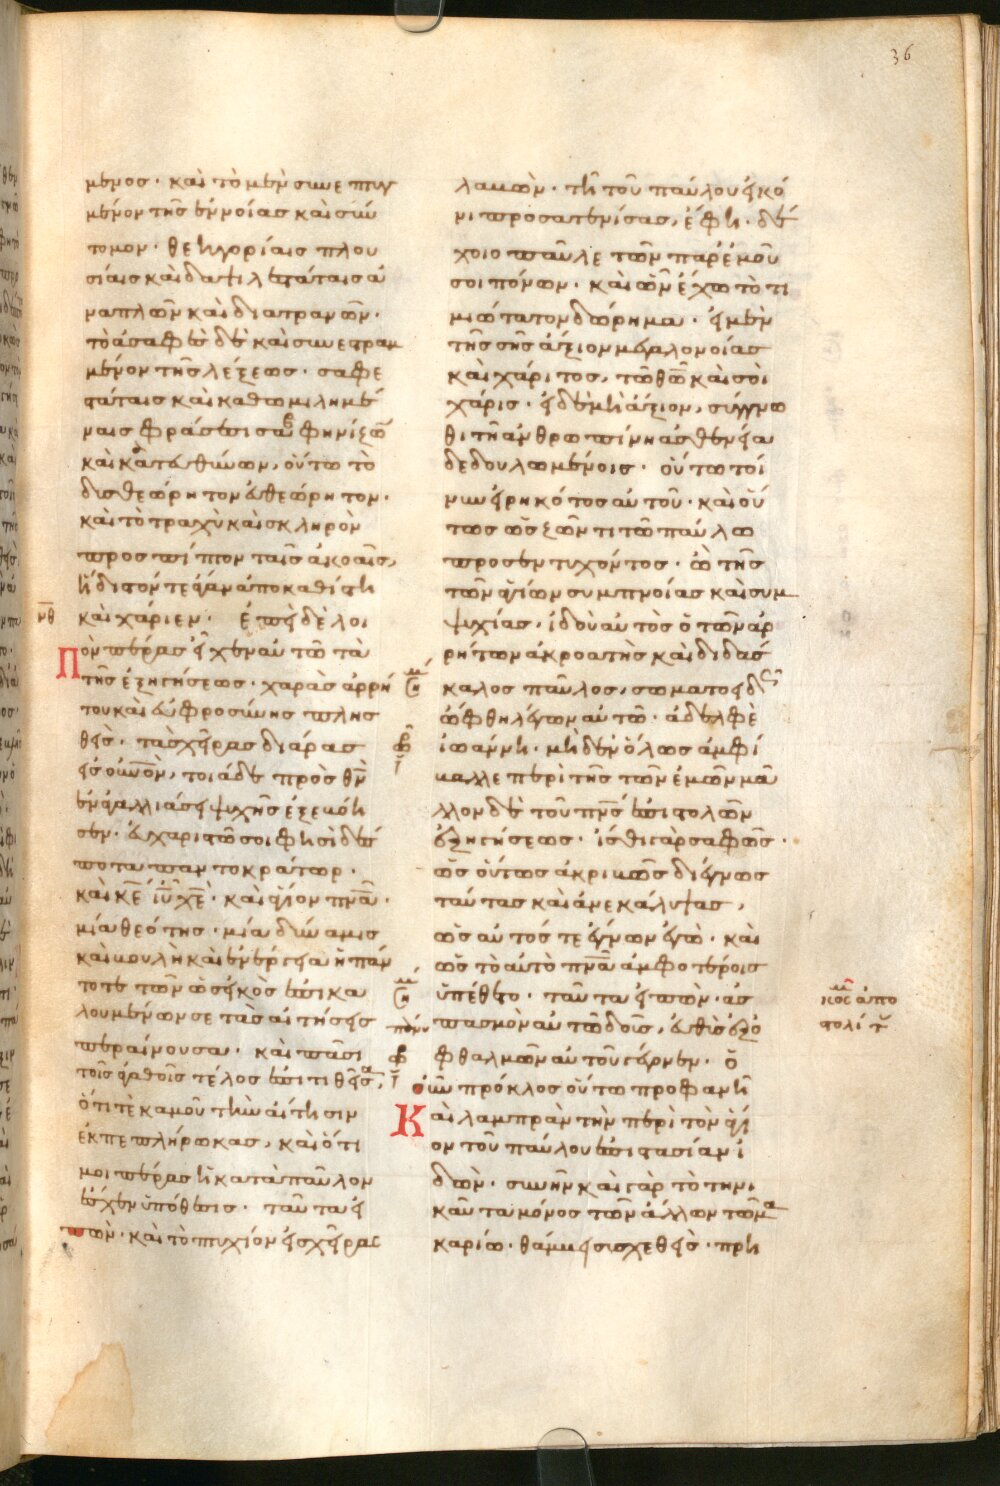 36
μενος· καὶ τὸ μὲν συνεπτυγ
μένον τῆς ἐννοίας καὶ σύν
τομον· θεηγορίαις πλου
σίαις καὶ δαψιλεστάταις ἀ
ναπλῶν καὶ διατρανῶν·
τὸ ἀσαφὲς δὲ καὶ συνεστραμ
μένον τῆς λέξεως· σαφε
στάταις καὶ καθωμιλημέ
ναις φράσεσι σαφηνίζων
καὶ κατευθύνων, οὕτω τὸ
δυσθεώρητον εὐθεώρητον·
καὶ τὸ τραχὺ καὶ σκληρὸν
προσπίπτον ταῖς ἀκοαῖς,
ἡδιστόν τε εἶναι ἀποκαθίστη
νθ
καὶ χάριεν· ἐπεὶ δὲ λοι
Πὸν πέρας εἶχεν αὐτῶ τὰ
τῆς ἐξηγήσεως· χαρᾶς ἀρρή
του καὶ εὐφροσύνης πλησ
θεὶς· τὰς χεῖρας διάρας
εἰς οὐνὸν, τοιάδε πρὸς θν
ἐν ἀγαλλιάσει ψυχῆς ἐξεβόη
σεν· εὐχαριστῶ σοι φησὶ δέσ
ποτα παντοκράτωρ·
καὶ κε ιυ χε· καὶ ἅγιον πνα·
μία θεότης· μία δύναμις
καὶ βουλὴ καὶ ἐνέργεια ἡ πάν
τοτε τῶν ὡς εἰκὸς ἐπικα
λουμένων σε τὰς αἰτήσεις
περαίνουσα· καὶ πᾶσι
τοῖς ἀγαθοῖς τέλος ἐπιτιθεῖσα,
ὅτι τὲ κἀμοῦ τὴν αἴτησιν
ἐκπεπλήρωκας, καὶ ὅτι
μοι πέρας ἡ κατὰ παῦλον
ἔσχεν ὑπόθεσις· ταῦτα εἰ
πὼν· καὶ τὸ πτυχίον εἰς χεῖρας
λαβὼν· τῆ τοῦ παύλου εἰκό
νι προσατενίσας, ἔφη· δέ
χοιο παῦλε τῶν παρ' ἐμοῦ
σοι πόνων· καὶ ὧν ἔχω τὸ τι
μιώτατον δώρημα· εἰ μὲν
τῆς σῆς ἄξιον μεγαλονοίας
καὶ χάριτος, τῶ θῶ καὶ σοὶ
χάρις· εἰ δὲ μὴ ἄξιον, σύγγνω
θι τῆ ἀνθρωπίνη ἀσθενεία
δεδουλωμένοις· οὕτω τοί
νυν εἰρηκότος αὐτοῦ· καὶ οὕ
τως ὡς ζῶντι τῶ παύλω
προσεντυχόντος· ὢ τῆς
τῶν ἁγίων συμπνοίας καὶ συμ
ψυχίας, ἰδοὺ αὐτὸς ὁ τῶν ἀρ
ρήτων ἀκροατὴς καὶ διδάσ
καλος παῦλος, σωματοειδῶς
ὤφθη λέγων αὐτῶ· ἀδελφὲ
ἰωάννη· μηδὲν ὅλως ἀμφί
βαλλε περὶ τῆς τῶν ἐμῶν μᾶ
λλον δὲ τοῦ πνς ἐπιστολῶν
ἐξηγήσεως· ἴσθι γὰρ σαφῶς·
ὡς οὕτως ἀκριβῶς διέγνως
ταύτας καὶ ἀνεκάλυψας,
ὡς αὐτός τε ἔγνων ἐγὼ· καὶ
ὡς τὸ αὐτὸ πνα ἀμφοτέροις
ὑπέθετο· ταῦτα εἰπὼν· ἀσ
πασμὸν αὐτῶ δοὺς, εὐθὺς ἐξ ὀ
φθαλμῶν αὐτοῦ γέγονεν· ὁ
οὖν πρόκλος οὕτω προφανῆ
Καὶ λαμπρὰν τὴν περὶ τὸν ἅγι
ον τοῦ παύλου ἐπιστασίαν ἰ
δὼν· συνῆν καὶ γὰρ τὸ τηνι
καῦτα μόνος τῶν ἄλλων τῶ μα
καρίω· θάμβει συσχεθεὶς· πρὶ